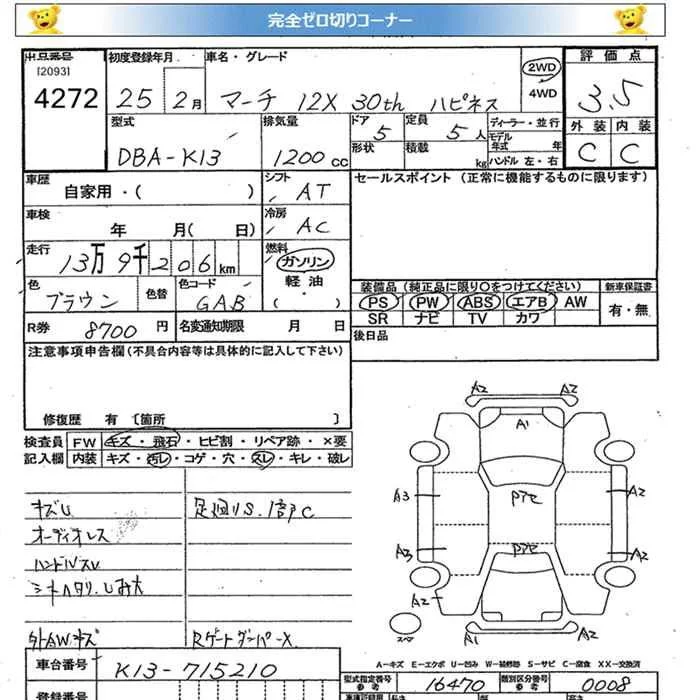 完全ゼロ切りコーナー
出品番号 初度登録年月 車名・グレード 2WD 評価点
[2093]
4272 25 2月 マーチ 12X 30th ハピネス 4WD 3.5
型式 排気量 ドア 定員 ディーラー・並行 外装 内装
5 5人 モデル年式 年
DBA-K13 1200cc 形状 積載 kg ハンドル 左・右 C C
車歴 シフト セールスポイント (正常に機能するものに限ります)
自家用・( ) AT
車検 冷房
年 月( 日) AC
走行 燃料
13万9千206km ガソリン
色 色替 色コード 軽油 装備品 (純正品に限り○をつけてください) 新車保証書
ブラウン GAB ・( ) PS PW ABS エアB AW 有・無
R券 8700円 名変通知期限 月 日 SR ナビ TV カワ
注意事項申告欄(不具合内容等は具体的に記入して下さい) 後日品
修復歴 有 [箇所 ]
検査員 FW キズ・飛石・ヒビ割・リペア跡・×要
記入欄 内装 キズ・汚れ・コゲ・穴・スレ・キレ・破レ
A2 A2
A1
A3 A2
A3 A2
A2 A2
スペア A1 A2
キズU 足廻りS.
オーディオレス
ハンドルスレ
外AWキズ Rゲートダンパー×
A-キズ E-エクボ U-凹み W-補修跡 S-サビ C-腐食 XX-交換済
車台番号 K13-715210 型式指定番号 参考 16470 類別区分番号 参考 0008
登録番号